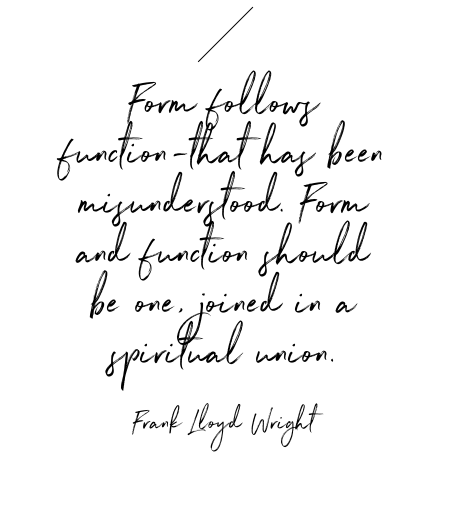 Form follows
function-that has been
misunderstood. Form
and function should
be one, joined in a
spiritual union.
Frank Lloyd Wright